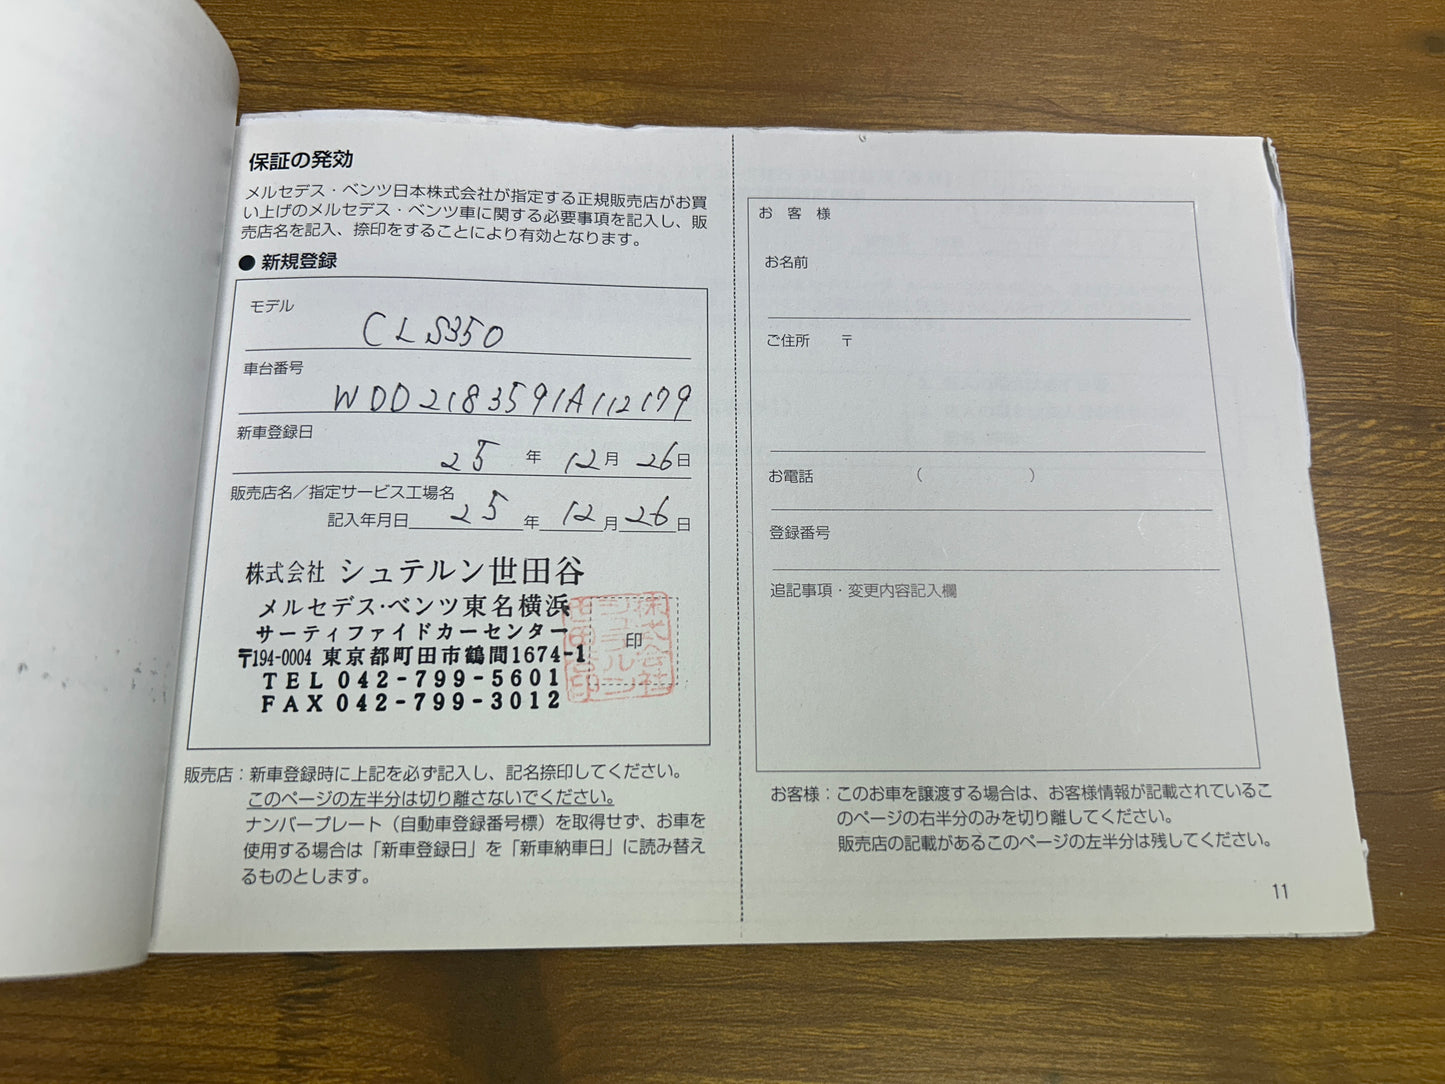 保証の発効
メルセデス・ベンツ日本株式会社が指定する正規販売店がお買
い上げのメルセデス・ベンツ車に関する必要事項を記入し、販
売店名を記入、捺印をすることにより有効となります。
● 新規登録
モデル
CLS350
車台番号
WDD2183591A112179
新車登録日
25 年 12 月 26 日
販売店名／指定サービス工場名
記入年月日 25 年 12 月 26 日
株式会社 シュテルン世田谷
メルセデス・ベンツ東名横浜
サーティファイドカーセンター
〒194-0004 東京都町田市鶴間1674-1
TEL 042-799-5601
FAX 042-799-3012
印
販売店：新車登録時に上記を必ず記入し、記名捺印してください。
このページの左半分は切り離さないでください。
ナンバープレート（自動車登録番号標）を取得せず、お車を
使用する場合は「新車登録日」を「新車納車日」に読み替え
るものとします。
お客様
お名前
ご住所 〒
お電話 （ ）
登録番号
追記事項・変更内容記入欄
お客様：このお車を譲渡する場合は、お客様情報が記載されているこ
のページの右半分のみを切り離してください。
販売店の記載があるこのページの左半分は残してください。
11